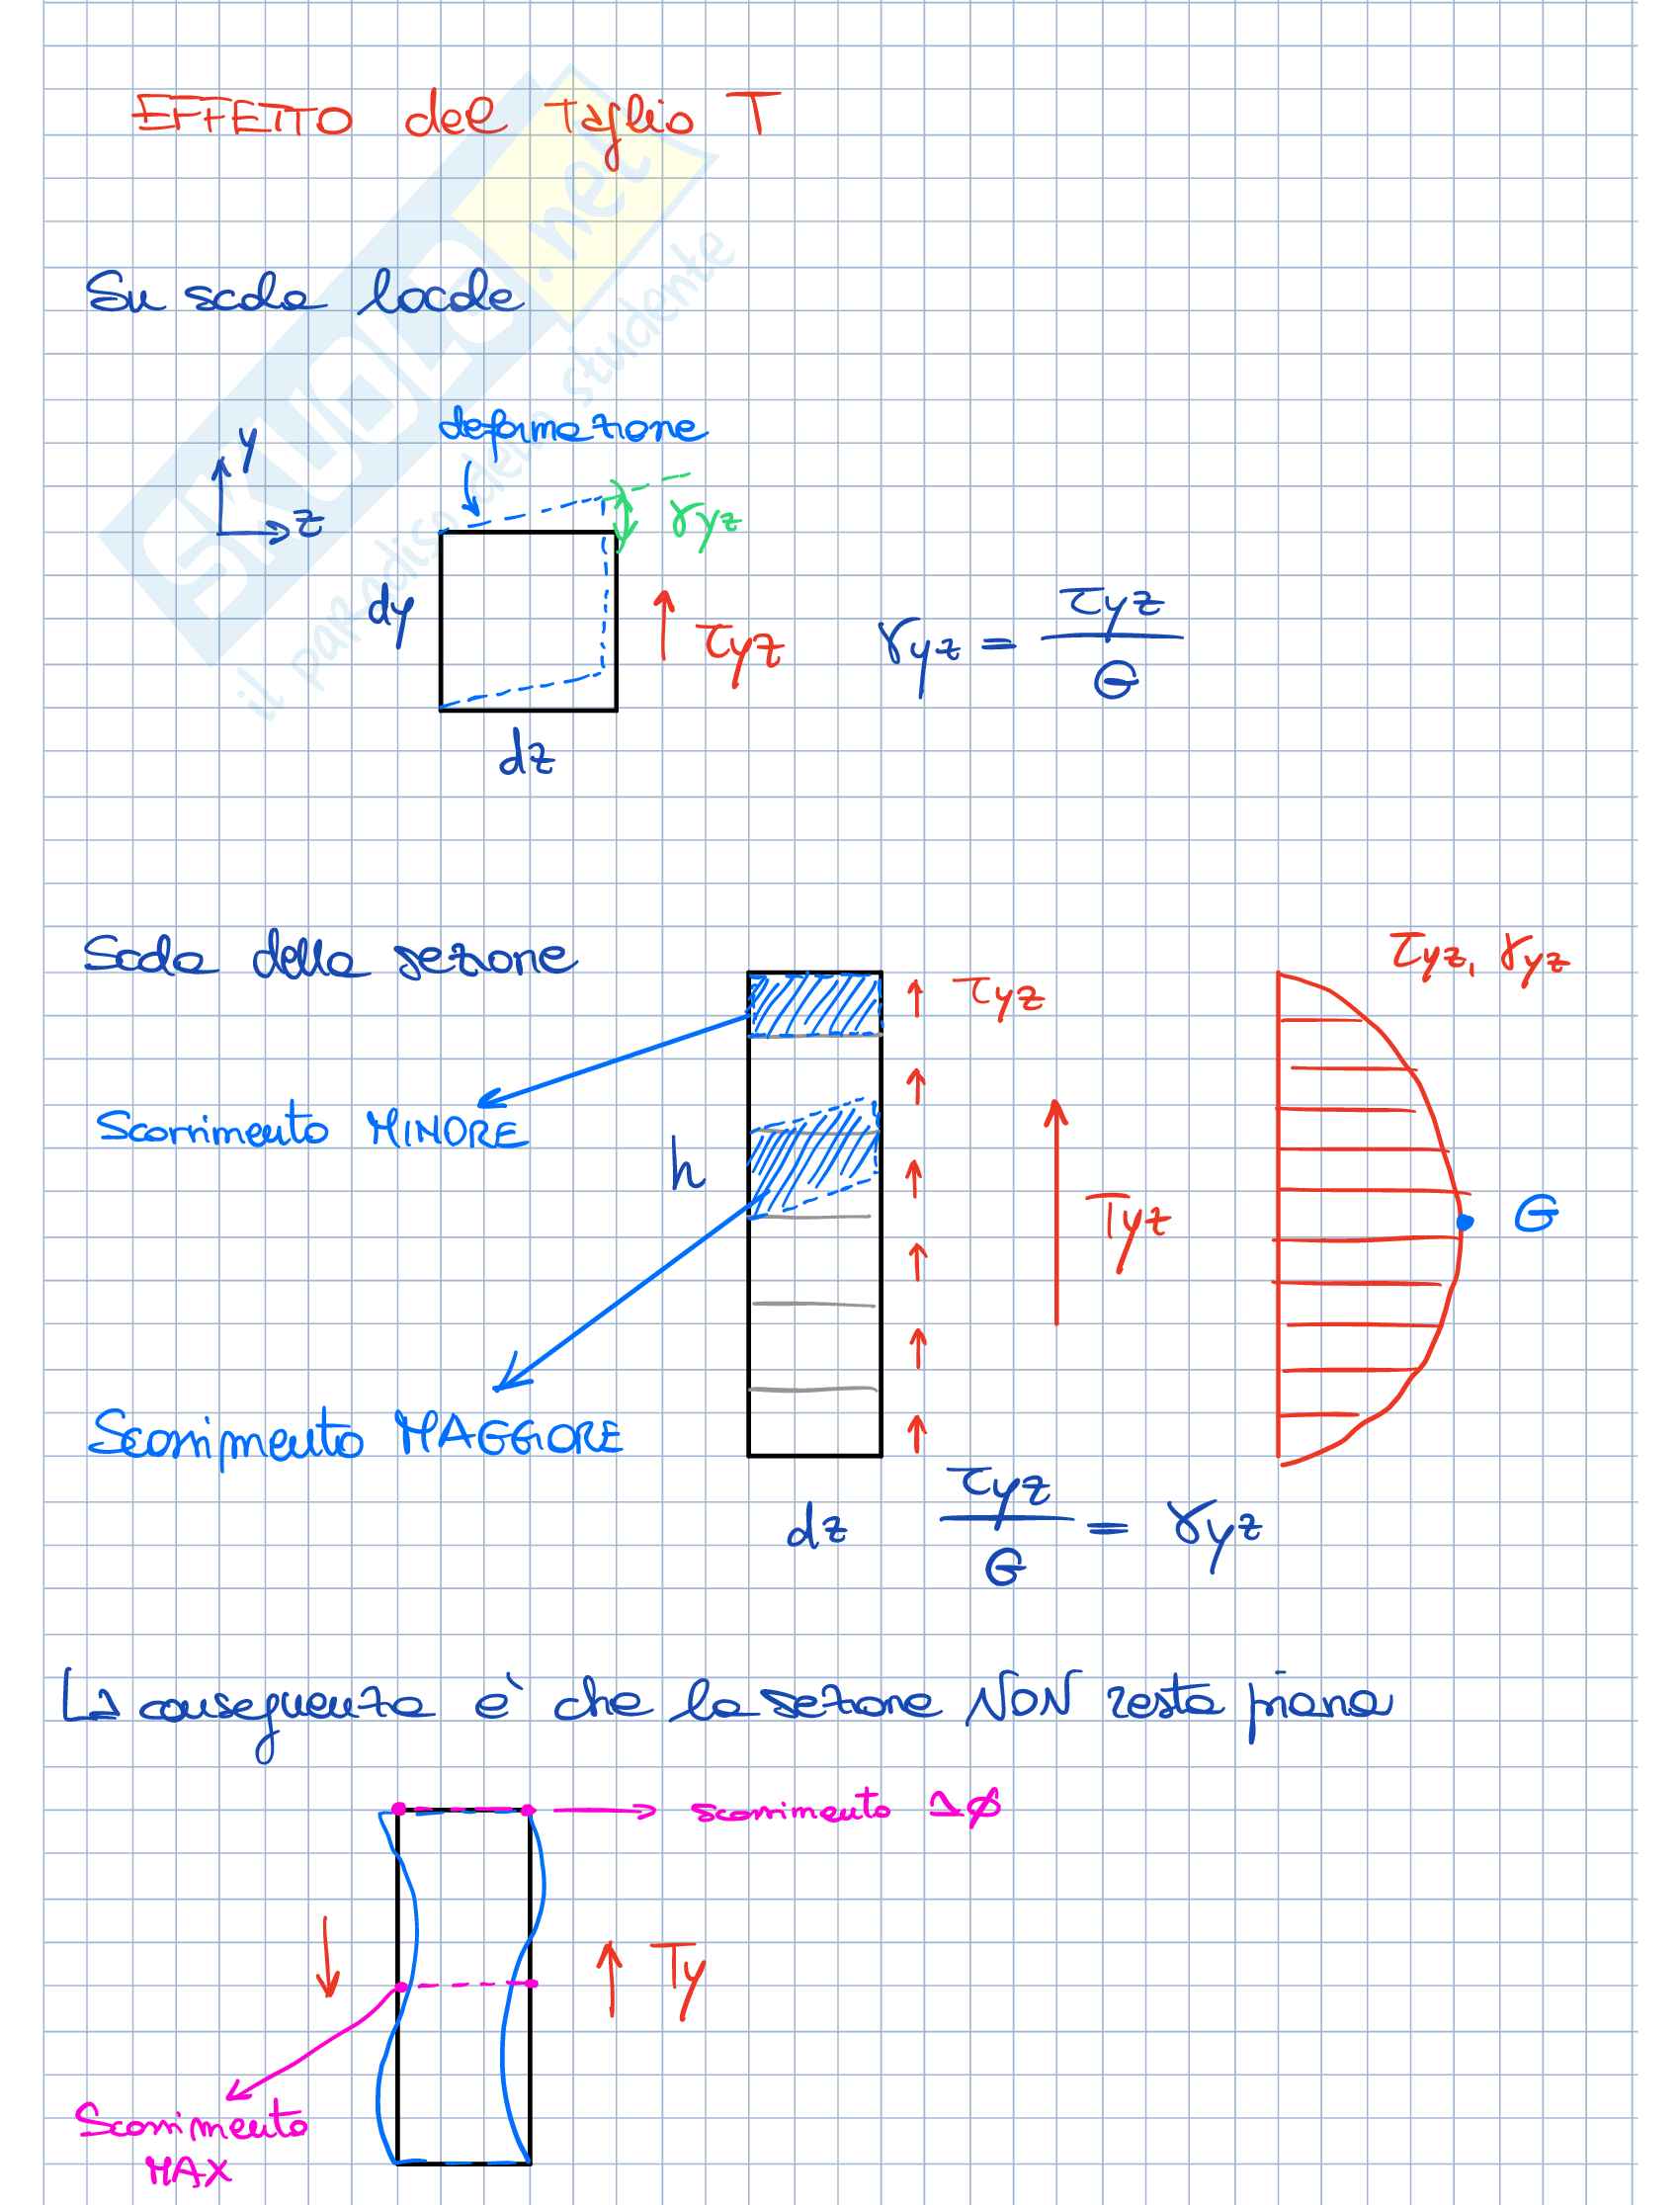 EFFETTO del Taglio T
Su scala locale
deformazione
y
z
γyz
dy
τyz
γyz = τyz / G
dz
Scala della sezione
τyz
τyz, γyz
Scorrimento MINORE
h
Tyz
G
Scorrimento MAGGIORE
dz
τyz / G = γyz
La conseguenza è che la sezione NON resta piana
scorrimento Δφ
Ty
Scorrimento
MAX
SKUOLA.net
il paradiso dello studente